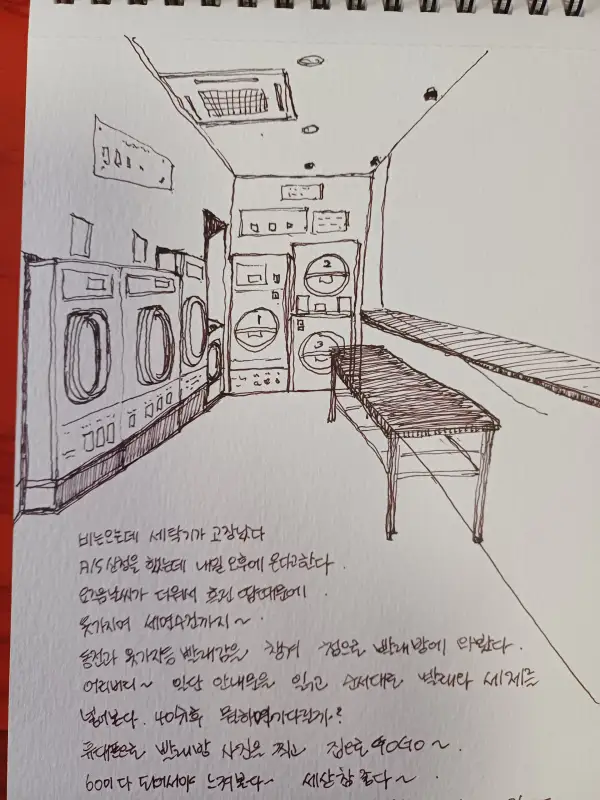 1
2
3
비는오는데 세탁기가 고장났다
A/S신청을 했는데 내일 오후에 온다고한다.
요즘날씨가 더워서 흐린 땀때문에
옷가지며 세면수건까지~
동전과 옷가지등 빨래감을 챙겨 첨으로 빨래방에 와봤다.
어리버리~ 일단 안내문을 읽고 순서대로 빨래와 세제를
넣어본다. 40분후 뭔하며기다릴까?
휴대폰으로 빨래방 사진을 찍고 집으로 GOGO~.
60이 다 되어서야 느껴본다~ 세상 참 좋다~.